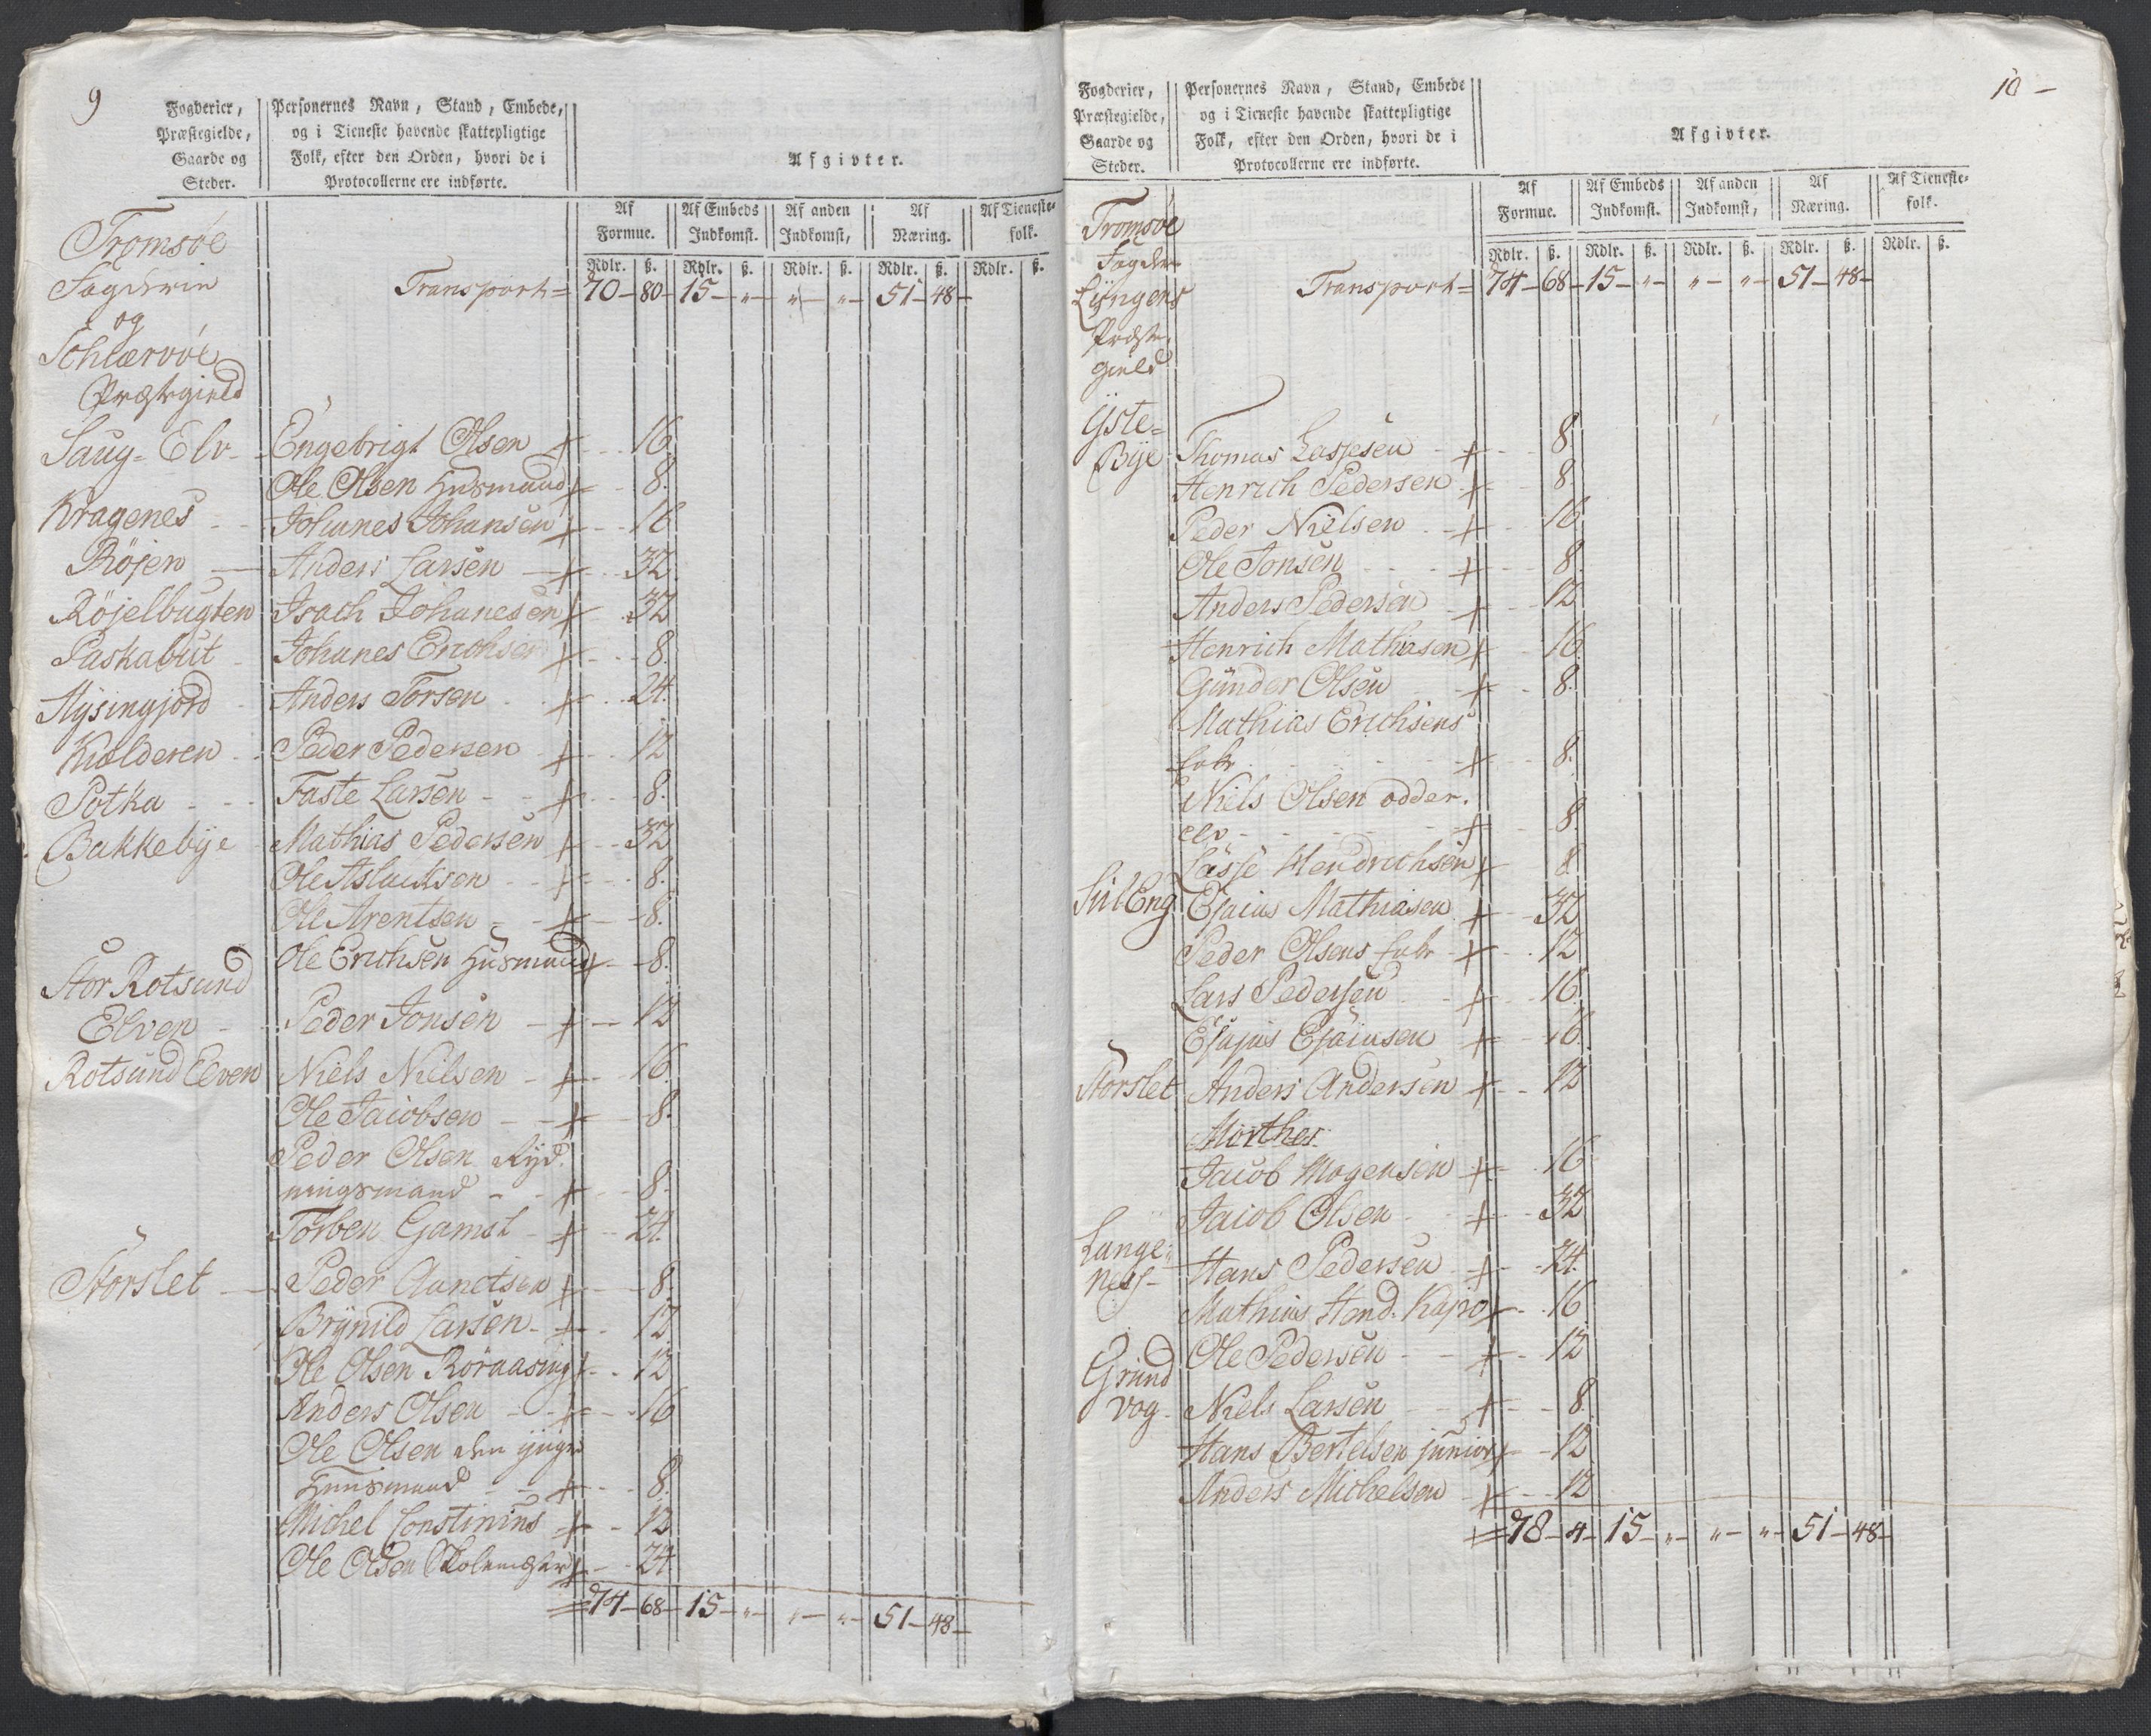 9
Fogderier, Præstegielde, Gaarde og Steder.
Personernes Navn, Stand, Embede, og i Tieneste havende skattepligtige Folk, efter den Orden, hvori de i Protocollerne ere indførte.
Afgivter.
Af Formue.
Af Embeds Indkomst.
Af anden Indkomst,
Af Næring.
Af Tieneste-folk.
Rdlr. ß. Rdlr. ß. Rdlr. ß. Rdlr. ß. Rdlr. ß.
Tromsøe
Fogderie
og
Schiærvøe
Præstegield
Transport= 70-80-15-"-"-"-51-48-
Saug=Elv- Engebrigt Olsen + 16
Ole Olsen Husmand + 8.
Kragenes Johanes Johansen + 16
Röjen Anders Larsen + 32.
Röjelbugten Isach Johanesen + 32
Paskabut Johanes Erichsen + 8.
Hysingjord Anders Torsen + 24.
Kiolderen Peder Pedersen + 12
Potka Faste Larsen + 8.
Bakkebye Mathias Pedersen + 32
Ole Aslaksen + 8.
Ole Arentsen + 8.
Ole Erichsen Husmand + 8.
Stor Rotsund
Elven Peder Jonsen + 12
Rotsund Elven Niels Nielsen + 16
Ole Jacobsen + 8.
Peder Olsen Ryd
ningsmand + 8.
Torben Gamst + 24.
Storslet Peder Aanetsen + 8.
Brynild Larsen + 12
Ole Olsen Röraasing + 12
Anders Olsen + 16
Ole Olsen den yngre
Huusmand + 8.
Michel Constinius + 12
Ole Olsen Skolemester + 24
=74-68-15-"-"-"-51-48-
10-
Fogderier, Præstegielde, Gaarde og Steder.
Personernes Navn, Stand, Embede og i Tieneste havende skattepligtige Folk, efter den Orden, hvori de i Protocollerne ere indførte.
Afgivter.
Af Formue.
Af Embeds Indkomst.
Af anden Indkomst,
Af Næring.
Af Tieneste-folk.
Rdlr. ß. Rdlr. ß. Rdlr. ß. Rdlr. ß. Rdlr. ß.
Tromsøe
Fogderie
Lyngens
Præste
gield
Transport= 74-68-15-"-"-"-51-48-
Yste=
Bye Thomas Lassesen + 8.
Henrich Pedersen + 8.
Peder Nielsen + 16
Ole Jonsen + 8.
Anders Pedersen + 12
Henrich Mathiasen + 16.
Gunder Olsen + 8.
Mathias Erichsens
Enke + 8.
Niels Olsen odder.
elv + 8.
Lasse Hendrichsen + 8
Sül Eng Esaias Mathiasen + 32
Peder Olsens Enke + 12
Lars Pedersen + 16.
Esajas Esaiasen + 16.
Storslet Anders Andersen + 12
Morthes
Jacob Mogensen + 16
Jacob Olsen + 32
Lange=
ness- Hans Pedersen + 24.
Mathias Hend. Kajvo + 16
Grund
vog- Ole Pedersen + 12
Niels Larsen + 8.
Hans Bertelsen junior + 12
Anders Michelsen + 12
=78-4-15-"-"-"-51-48-